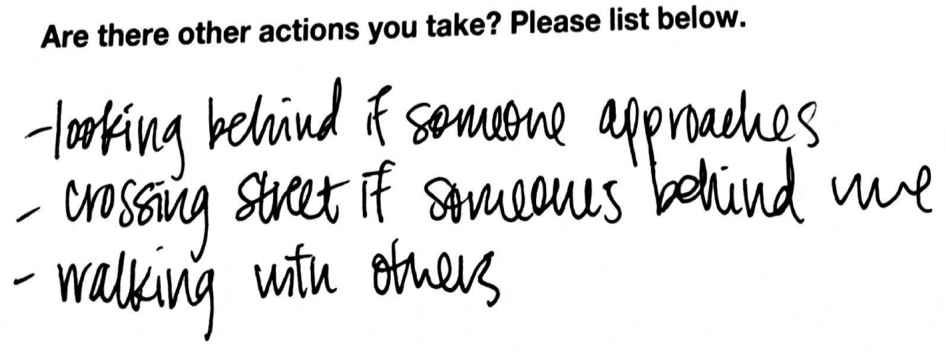 Are there other actions you take? Please list below.
-looking behind if someone approaches
- crossing street if someones behind me
- walking with others